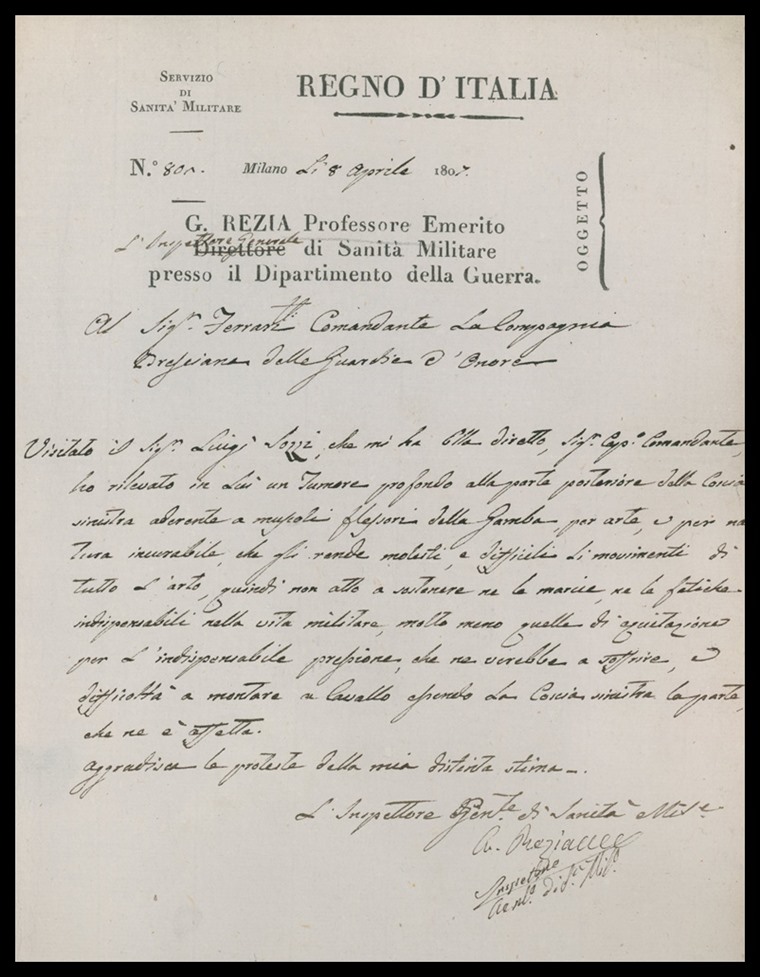 SERVIZIO
DI
SANITA' MILITARE
REGNO D'ITALIA
N.º 801. Milano Li 8 Aprile 1807.
OGGETTO
G. REZIA Professore Emerito
L'Inspettore Generale
Direttore di Sanità Militare
presso il Dipartimento della Guerra.
Al Sig.r Ferrari Comandante La Compagnia
Bresciana delle Guardie d'Onore
Visitato il Sig.r Luigi Sozzi, che mi ha Ella diretto, Sig.r Cap.o Comandante,
ho rilevato in Lui un Tumore profondo alla parte posteriore della Coscia
sinistra aderente a muscoli flessori della Gamba, per arte, e per na
tura incurabile, che gli rende molesti, e difficili li movimenti di
tutto l'arto, quindi non atto a sostenere ne le marcie, ne le fatiche
indispensabili nella vita militare, molto meno quelle di equitazione
per l'indispensabile pressione, che ne verebbe a soffrire, e
difficoltà a montare a Cavallo essendo la Coscia sinistra la parte,
che ne è affetta.
Aggradisca le proteste della mia distinta stima.
L'Inspettore Gen.le di Sanità Mil.e
G. Rezia
Inspettore
Gen.le di S.tà Mil.e